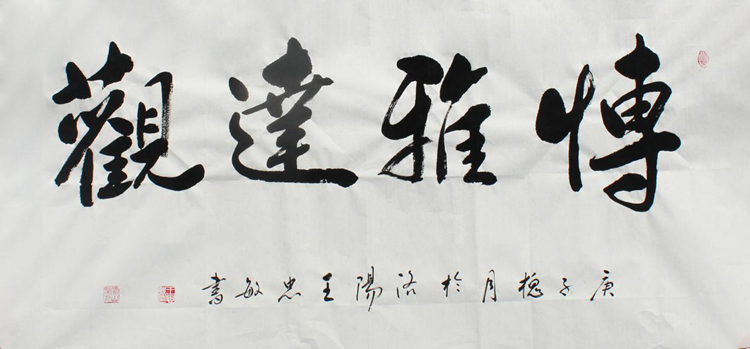 博雅達觀
庚子槐月於洛陽王忠敏書